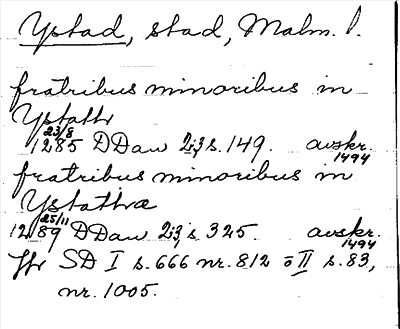 Ystad, stad, Malm. l.
fratribus minoribus in
Ystathr
23/8
1285 DDan 2:3, s. 149. avskr.
1494
fratribus minoribus in
Ystathræ
25/11
1289 DDan 2:3, s. 325. avskr.
1494
Jfr SD I s. 666 nr. 812 o II s. 83,
nr. 1005.